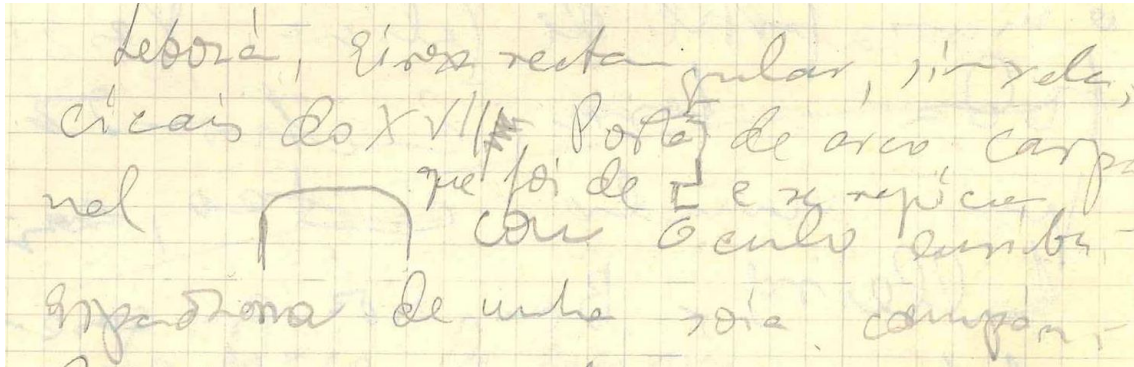 Leboxá, eirex rectangular, sinxela,
cicais do XVII Porta de arco carpa
nel que foi de e se repicou
con óculo enriba.
Espadana de unha soia campán